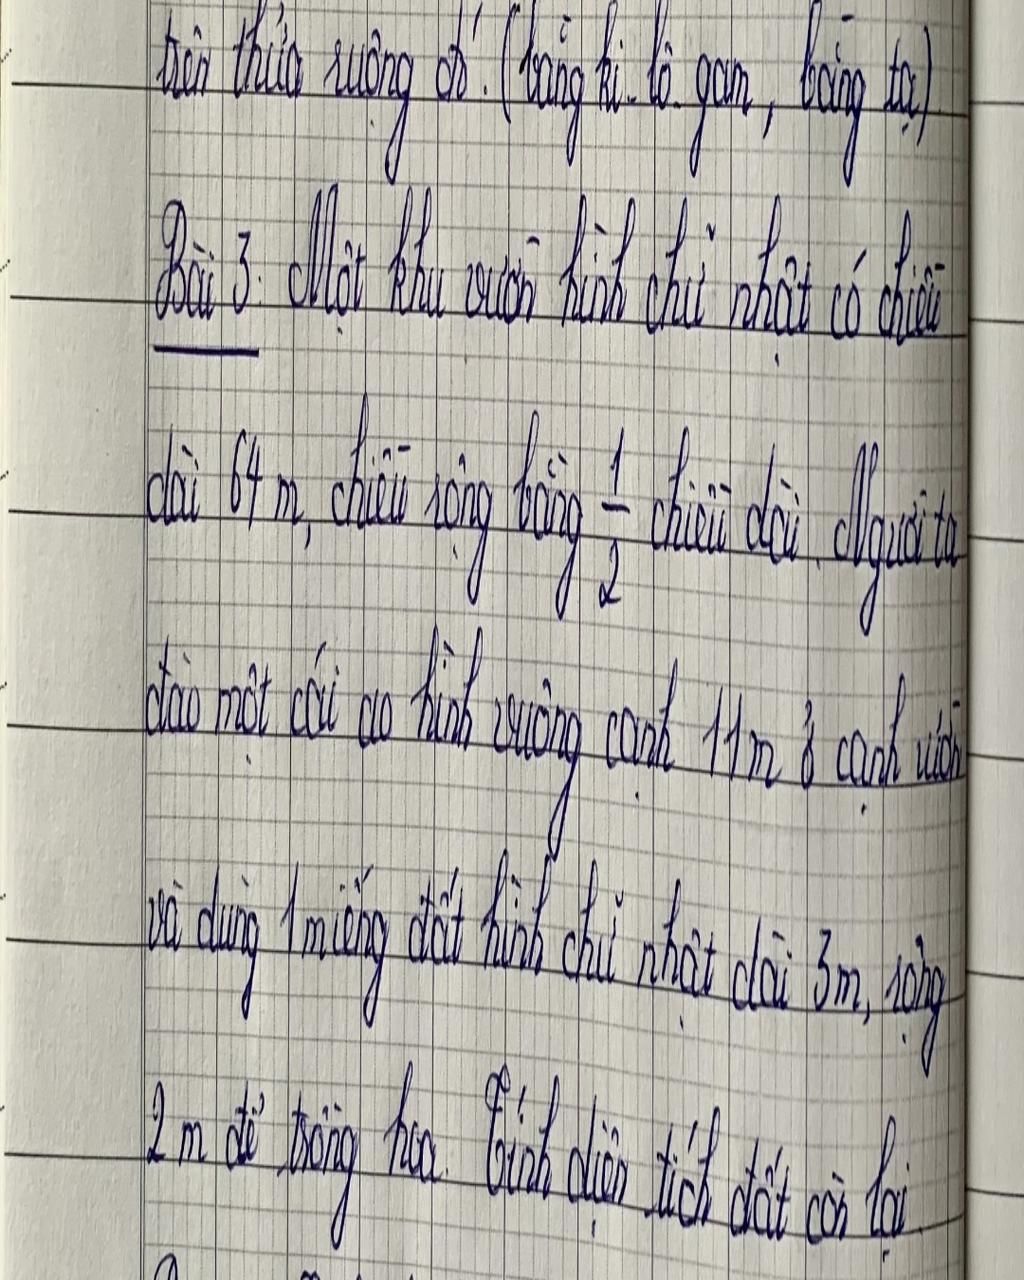 trên thửa ruộng đó. (bằng ki-lô-gam, bằng tạ)
Bài 3. Một khu vườn hình chữ nhật có chiều
dài 64 m, chiều rộng bằng 1/2 chiều dài. Người ta
đào một cái ao hình vuông cạnh 11m ở cạnh vườn
và dùng 1 miếng đất hình chữ nhật dài 3m, rộng
2 m để trồng hoa. Tính diện tích đất còn lại.